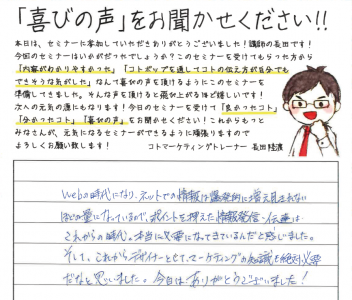 「喜びの声」をお聞かせください!!
本日は、セミナーに参加していただきありがとうございました！講師の長田です！
今回のセミナーはいかがだったでしょうか？このセミナーを受けてもらった方から
「内容がわかりやすかった」「コトポップを通してコトの伝え方が自分でも
できそうな気がした」なんて喜びの声を頂けるようにこのセミナーを
準備してきました。そんな声を頂けると飛び上がるほど嬉しいです！
次への元気の源にもなります！今日のセミナーを受けて「良かったコト」
「分かったコト」「喜びの声」をお聞かせください！これからもっと
みなさんが、元気になるセミナーができるように頑張りますので
よろしくお願い致します！
コトマーケティングトレーナー 長田
Webの時代になり、ネットでの情報は爆発的に増え見きれない
ほどの量になっているので、ポイントを押えた情報発信・伝達は
これからの時代。本当に必要になってきているんだと感じました。
そして、これからデザイナーとして、マーケティングの知識も絶対必要
だなと思いました。今日はありがとうございました！